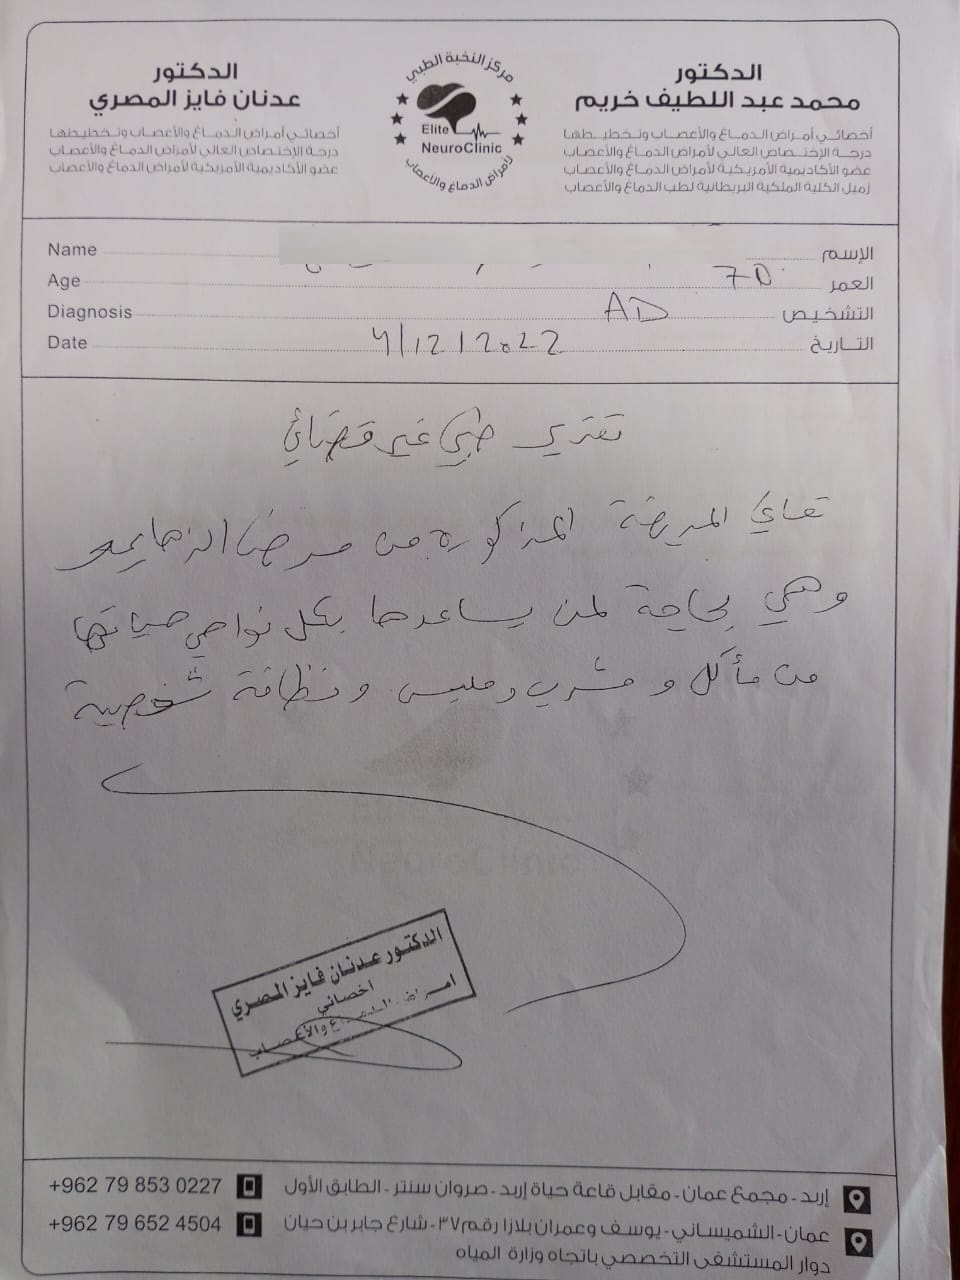 الدكتور
محمد عبد اللطيف خريم
أخصائي أمراض الدماغ والأعصاب وتخطيطها
درجة الإختصاص العالي لأمراض الدماغ والأعصاب
عضو الأكاديمية الأمريكية لأمراض الدماغ والأعصاب
زميل الكلية الملكية البريطانية لطب الدماغ والأعصاب
مركز النخبة الطبي
Elite
NeuroClinic
لأمراض الدماغ والأعصاب
الدكتور
عدنان فايز المصري
أخصائي أمراض الدماغ والأعصاب وتخطيطها
درجة الإختصاص العالي لأمراض الدماغ والأعصاب
عضو الأكاديمية الأمريكية لأمراض الدماغ والأعصاب
الإسم Name
العمر 70 Age
التشخيص AD Diagnosis
التاريخ /12/2022 Date
تقرير طبي غير قضائي
تعاني المريضة المذكورة من مرض الزهايمر
وهي بحاجة لمن يساعدها بكل نواحي حياتها
من مأكل و مشرب وملبس ونظافة شخصية
الدكتور عدنان فايز المصري
اخصائي
امراض الدماغ والأعصاب
إربد - مجمع عمان - مقابل قاعة حياة إربد - صروان سنتر - الطابق الأول +962 79 853 0227
عمان - الشميساني - يوسف وعمران بلازا رقم ٣٧ - شارع جابر بن حيان +962 79 652 4504
دوار المستشفى التخصصي باتجاه وزارة المياه